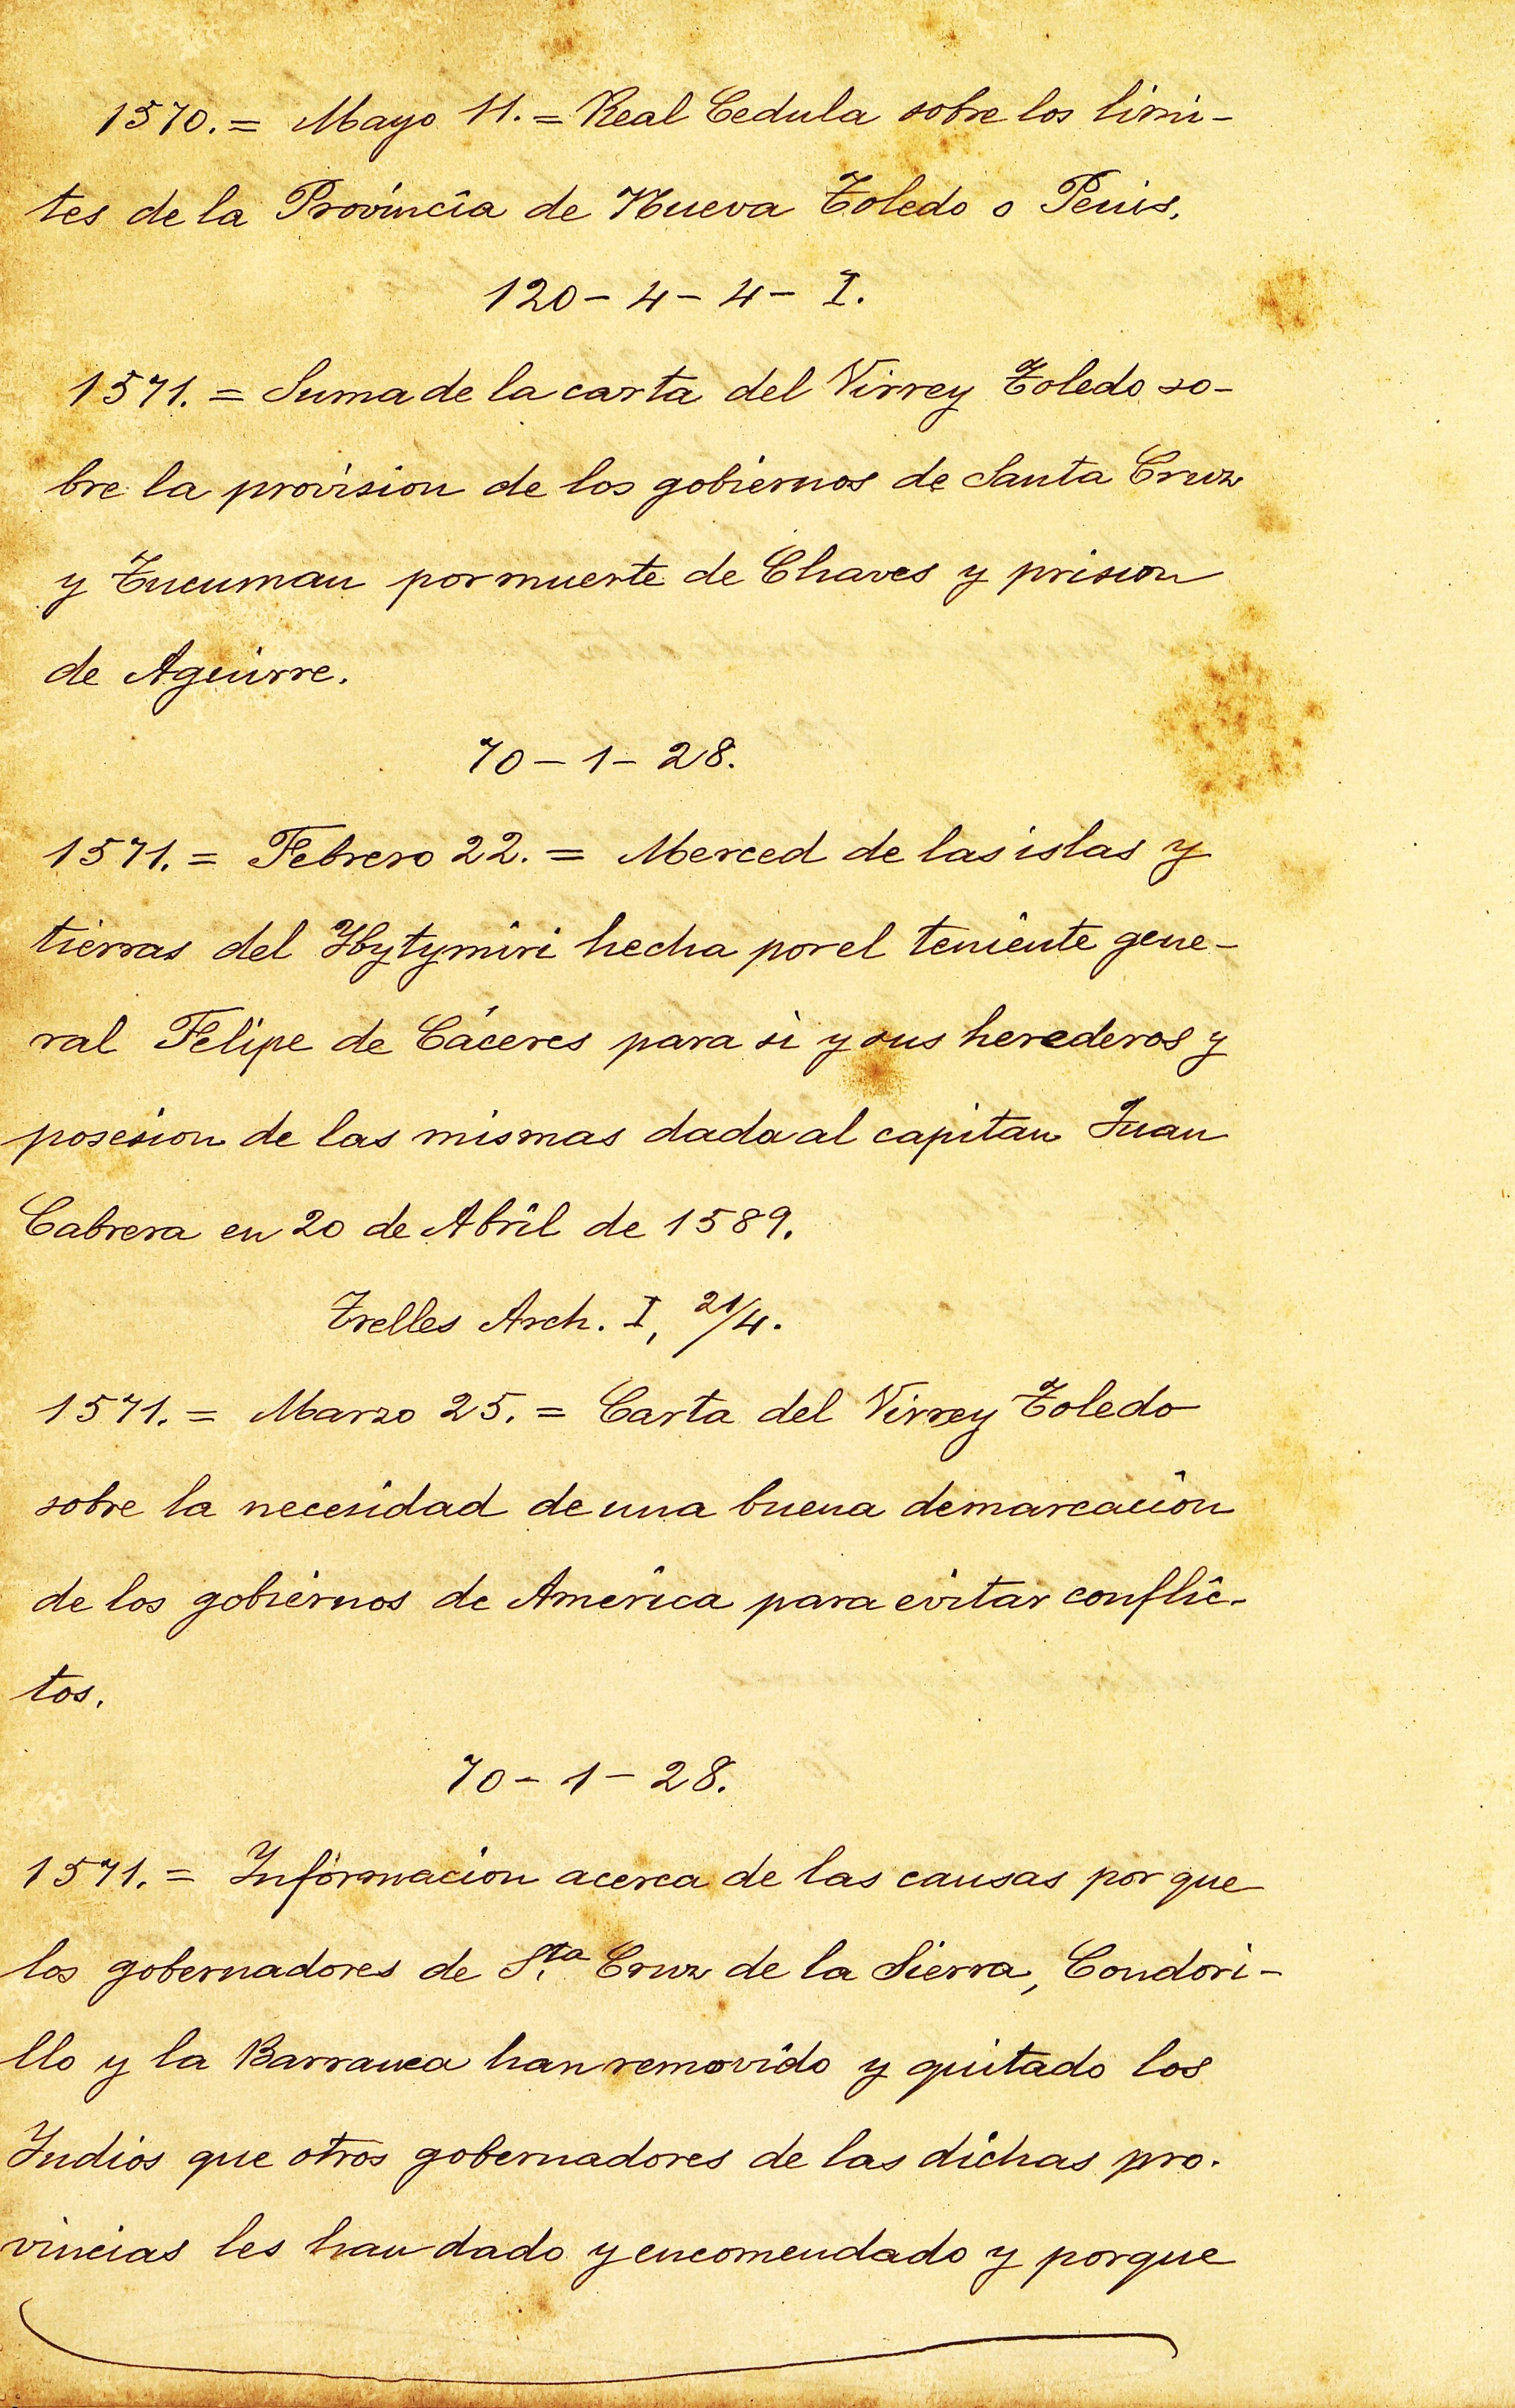 1570. = Mayo 11. = Real Cedula sobre los limi-
tes de la Provincia de Nueva Toledo o
120 - 4 - 4 - I.
1571. = Suma de la carta del Virrey Toledo so-
bre la provision de los gobiernos de Santa Cruz
y Tucuman por muerte de Chaves y prision
de Aguirre.
70 - 1 - 28.
1571. = Febrero 22. = Merced de las islas y
tierras del Ybytymiri hecha por el teniente gene-
ral Felipe de Cáceres para si y sus herederos y
posesion de las mismas dada al capitan Juan
Cabrera en 20 de Abril de 1589.
Trelles Arch. I, 21/4.
1571. = Marzo 25. = Carta del Virrey Toledo
sobre la necesidad de una buena demarcación
de los gobiernos de America para evitar conflic-
tos.
70 - 1 - 28.
1571. = Informacion acerca de las causas por que
los gobernadores de Sta. Cruz de la Sierra, Condori-
llo y la Barranca han removido y quitado los
Indios que otros gobernadores de las dichas pro-
vincias les han dado y encomendado y porque